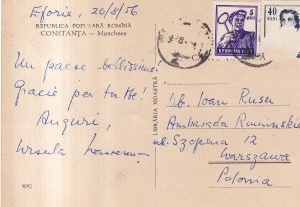 Eforie, 20/8/56
REPUBLICA POPULARĂ ROMÎNĂ
CONSTANȚA — Moscheea
Un paese bellissimo!
Grazie per tutto!
Auguri,
Ursula
LIBRĂRIA NOASTRĂ
40 BANI
Ob. Ioan Rusu
Ambasada Rumuńska
ul. Szopena 12
Warszawa
Polonia